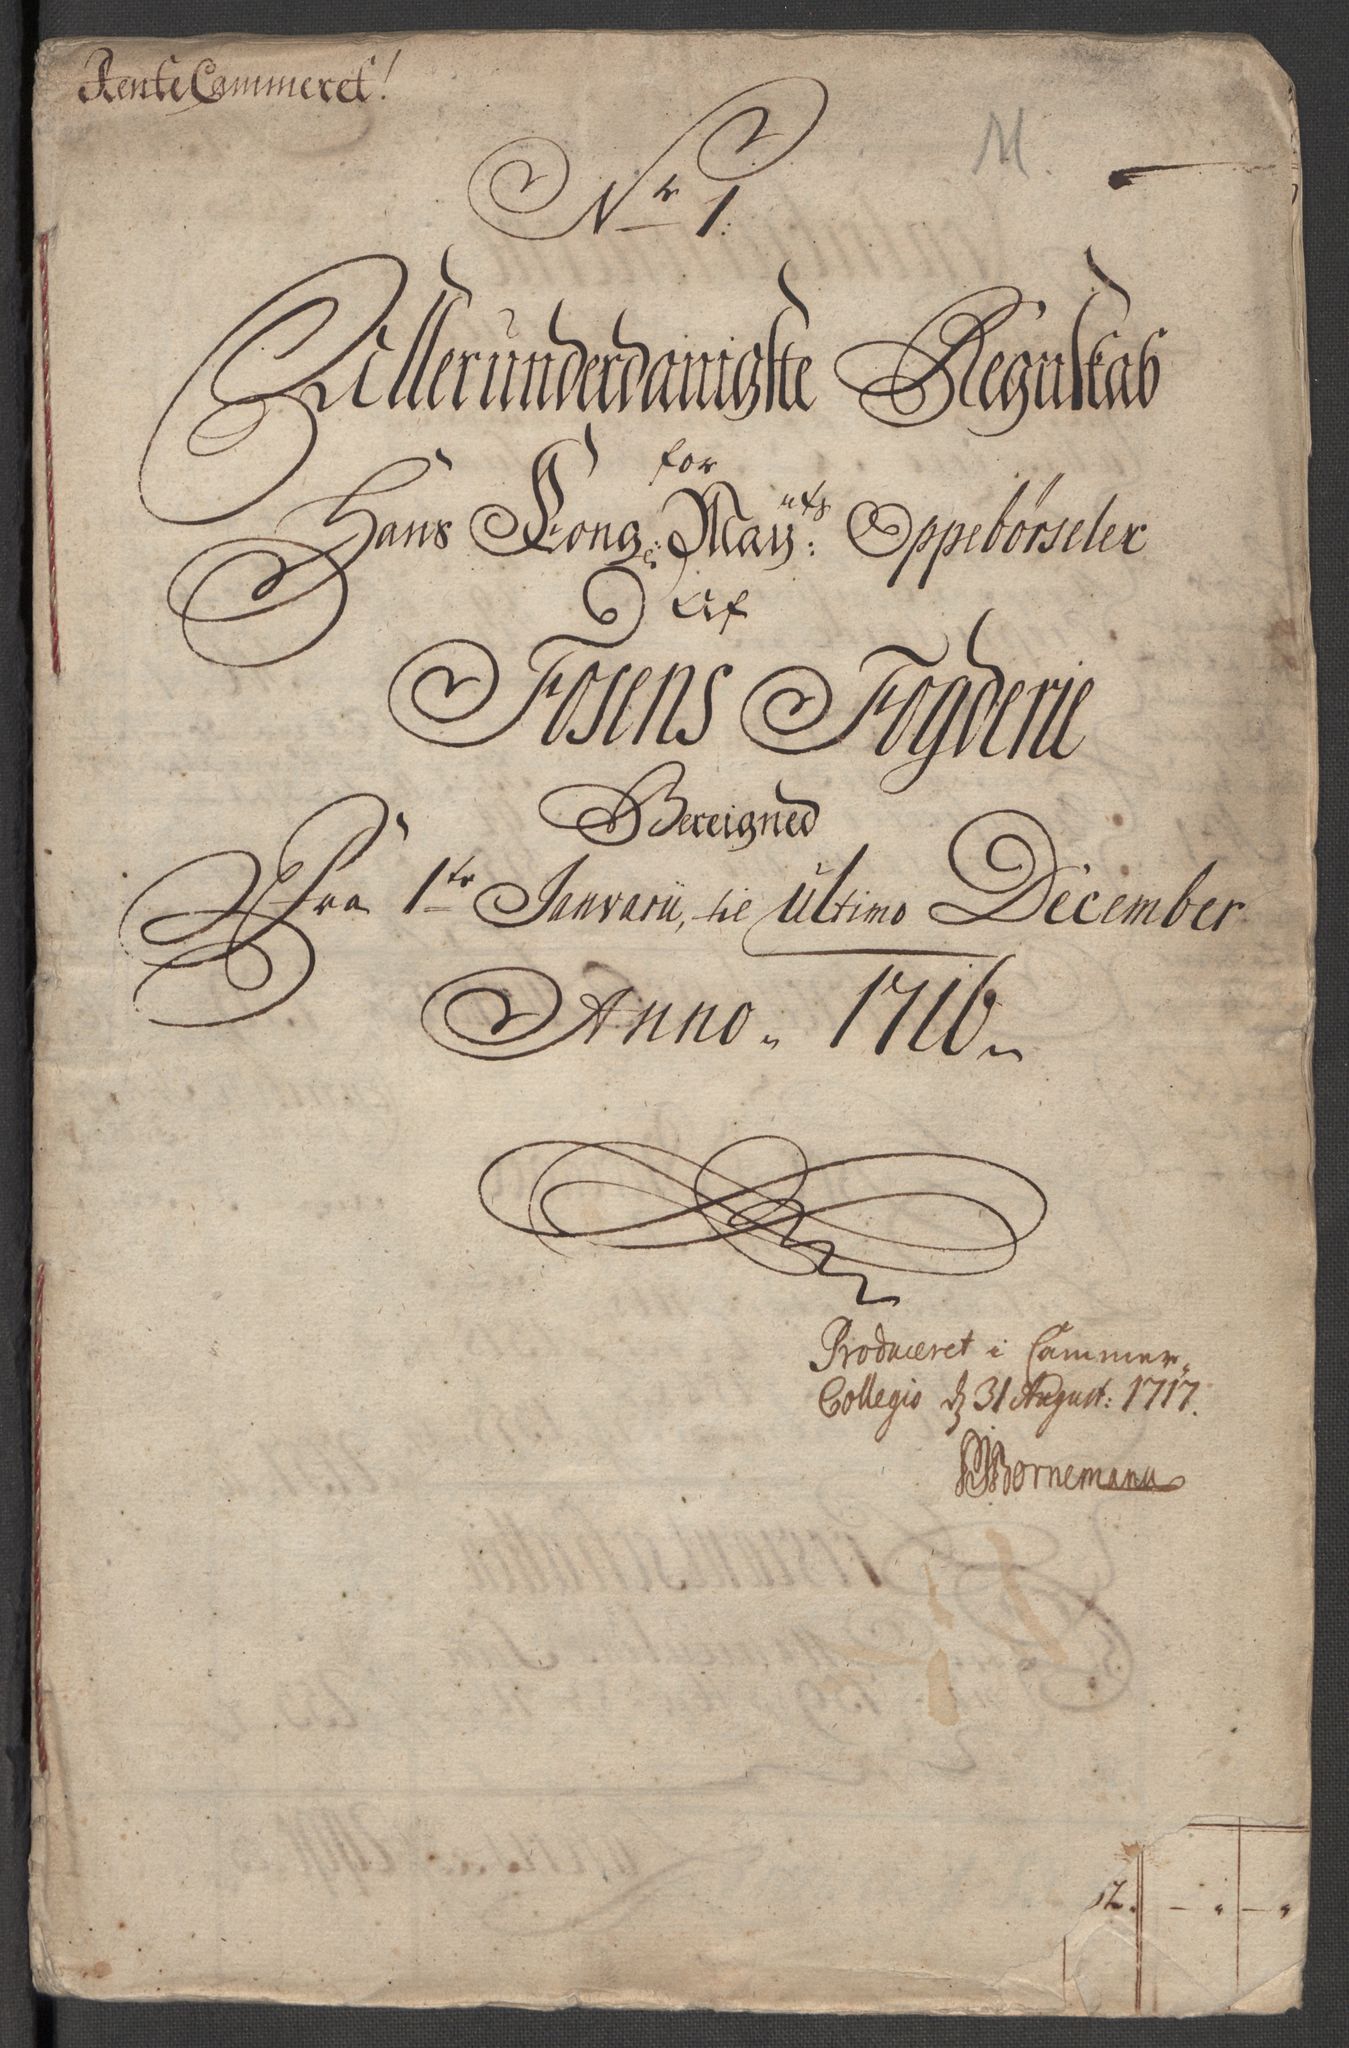 RenteCammeret!
M.
Nr 1.
Allerunderdanigste Regnskab
for
Hans Kong: Mayts: Oppebörseler
Af
Fosens Fogderie
Bereigned
Fra 1te Januarii, til ultimo December
Anno 1716
Produceret i Cammer-
Collegio d 31 August: 1717.
Bornemann